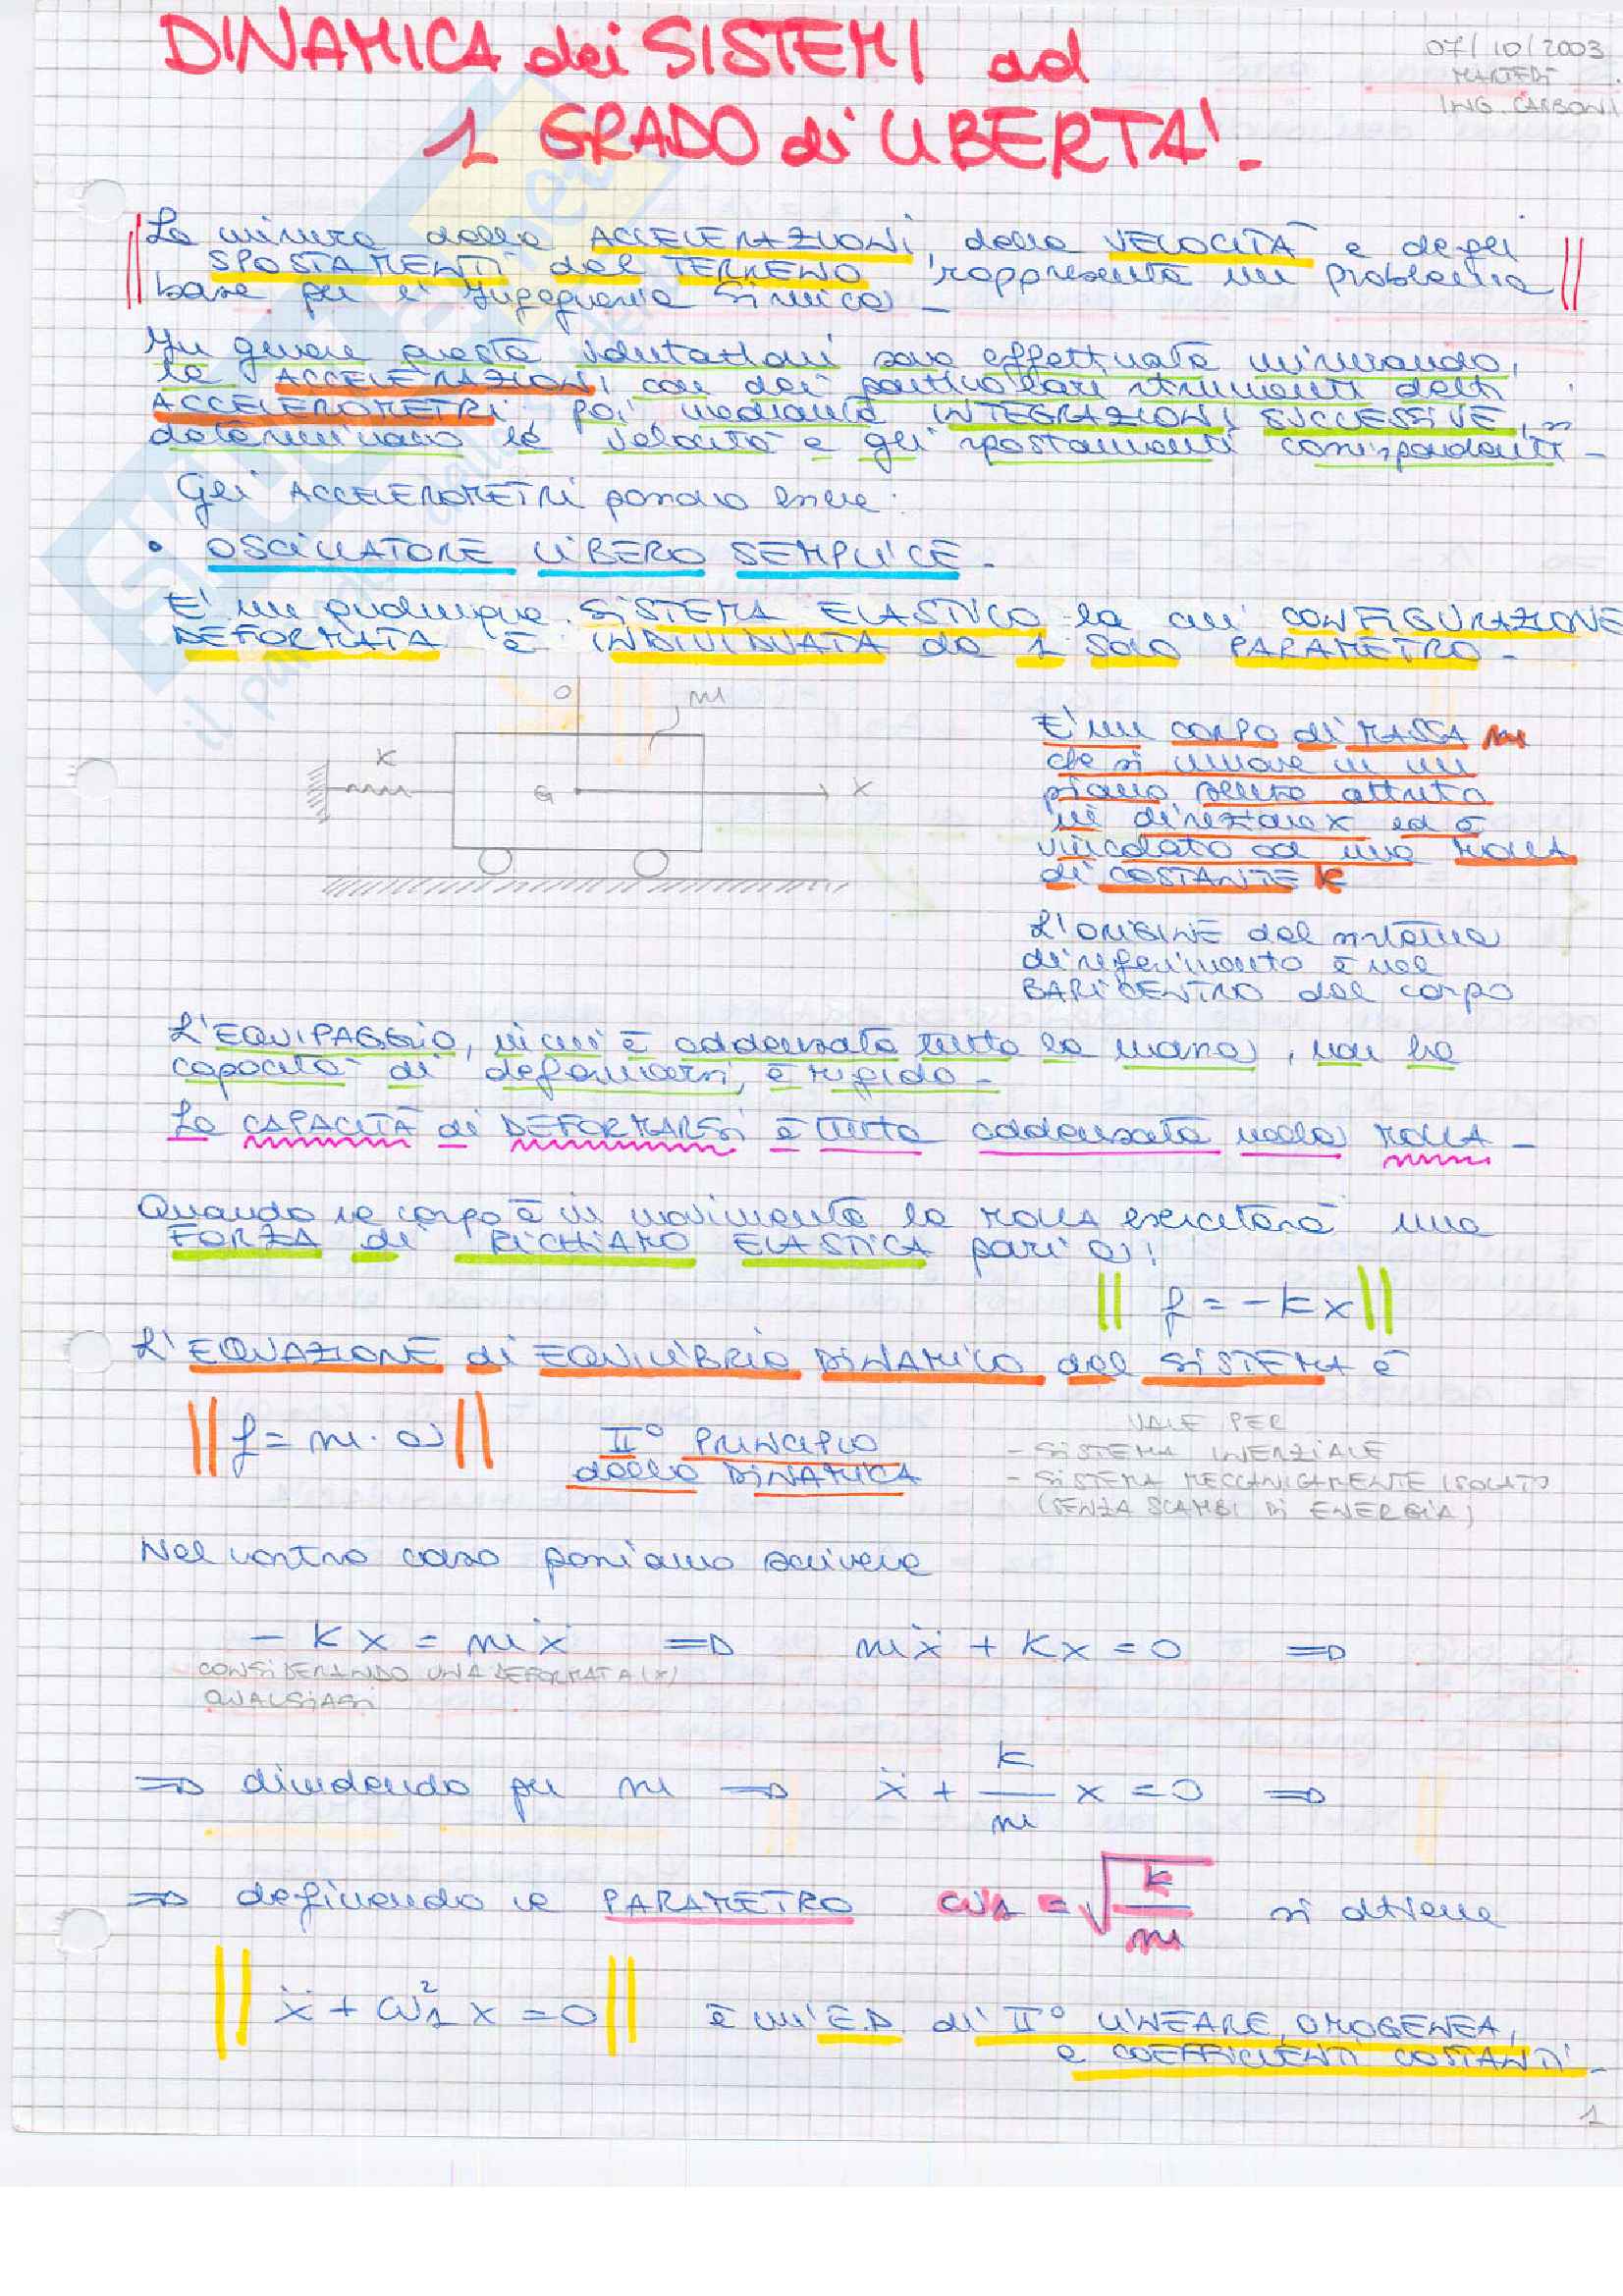 07/10/2003
MARTEDÌ
ING. CARBONI
DINAMICA dei SISTEMI ad
1 GRADO di LIBERTA' -
La misura delle ACCELERAZIONI, delle VELOCITÀ e degli
SPOSTAMENTI del TERRENO rappresenta un problema
base per l'Ingegneria Sismica -
In genere queste valutazioni sono effettuate misurando,
le ACCELERAZIONI, con dei particolari strumenti detti
ACCELEROMETRI, poi mediante INTEGRAZIONI SUCCESSIVE, si
determinano le velocità e gli spostamenti corrispondenti -
Gli ACCELEROMETRI possono essere:
• OSCILLATORE LIBERO SEMPLICE -
E' un qualunque SISTEMA ELASTICO la cui CONFIGURAZIONE
DEFORMATA è INDIVIDUATA da 1 solo PARAMETRO -
O
m
K
G
X
E' un CORPO di MASSA m
che si muove in un
piano senza attrito
in direzione x ed è
vincolato ad una MOLLA
di COSTANTE K
L'ORIGINE del sistema
di riferimento è nel
BARICENTRO del corpo
L'EQUIPAGGIO, in cui è addensata tutta la massa, non ha
capacità di deformarsi, è rigido -
La CAPACITÀ di DEFORMARSI è tutta addensata nella MOLLA -
Quando il corpo è in movimento la MOLLA eserciterà una
FORZA di RICHIAMO ELASTICA pari a:
f = - k x
L'EQUAZIONE di EQUILIBRIO DINAMICO del SISTEMA è
f = m · a
II° PRINCIPIO
della DINAMICA
VALE PER
- SISTEMA INERZIALE
- SISTEMA MECCANICAMENTE ISOLATO
(SENZA SCAMBI DI ENERGIA)
Nel nostro caso possiamo scrivere
- k x = m ẍ ⇒ m ẍ + k x = 0 ⇒
CONSIDERANDO UNA DEFORMATA (X)
QUALSIASI
⇒ dividendo per m ⇒ ẍ + k/m x = 0 ⇒
⇒ definendo il PARAMETRO ω₁ = √k/m si ottiene
ẍ + ω₁² x = 0 è un'E.D. di II° LINEARE, OMOGENEA,
a COEFFICIENTI COSTANTI -
1